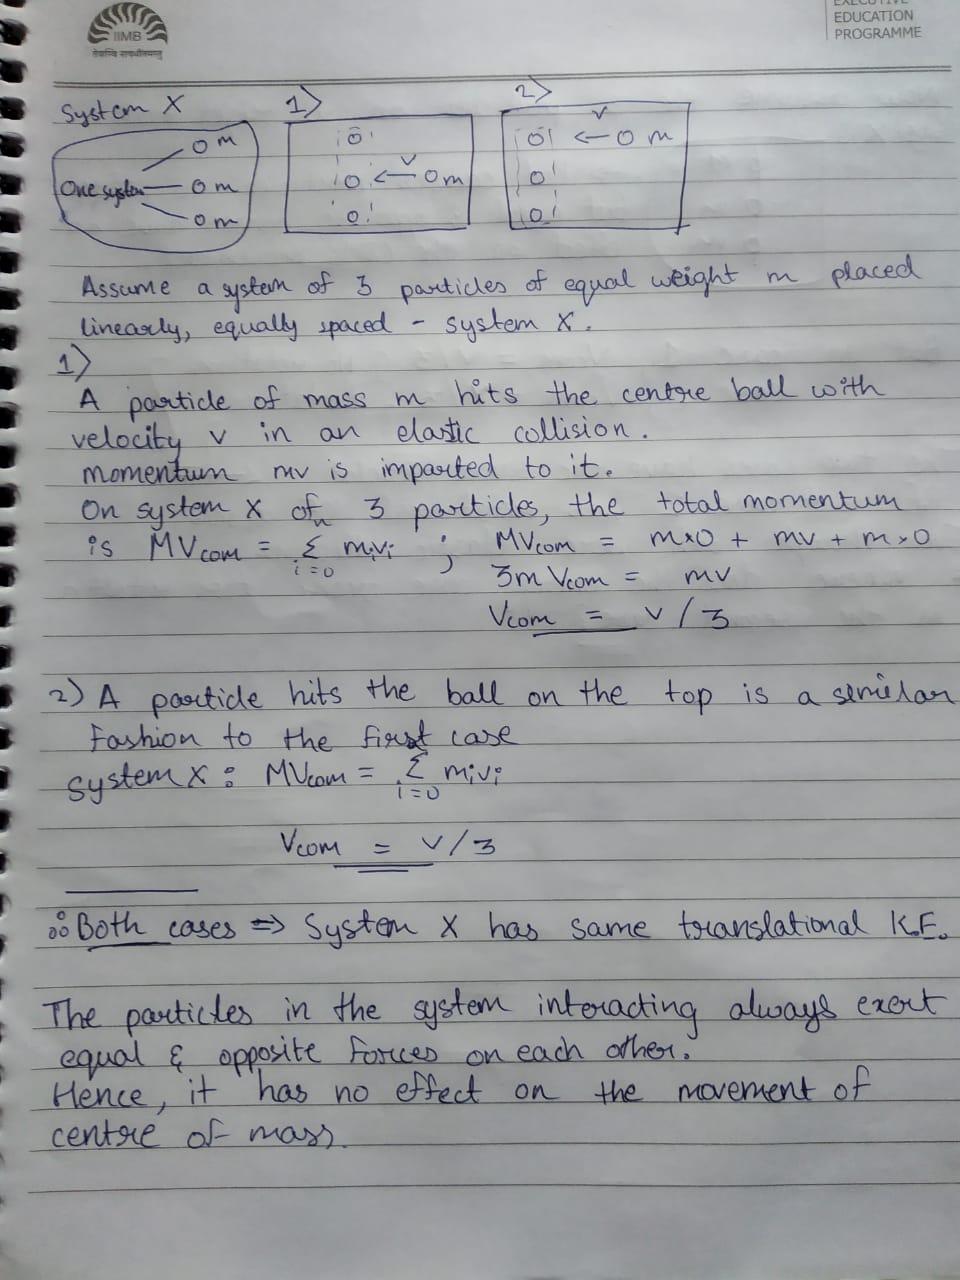 IIMB
EXECUTIVE
EDUCATION
PROGRAMME
System X
1)
2)
One system
O m
O m
O m
v
O m
v
O m
Assume a system of 3 particles of equal weight m placed
linearly, equally spaced - system X.
1)
A particle of mass m hits the centre ball with
velocity v in an elastic collision.
momentum mv is imparted to it.
On system X of 3 particles, the total momentum
is MVcom = n Σ i=0 mivi ; MVcom = m×0 + mv + m×0
3m Vcom = mv
Vcom = v/3
2) A particle hits the ball on the top is a similar
Fashion to the first case
system X : MVcom = Σ i=0 mivi
Vcom = v/3
∴ Both cases ⇒ System X has same translational K.E.
The particles in the system interacting always exert
equal & opposite forces on each other.
Hence, it has no effect on the movement of
centre of mass.